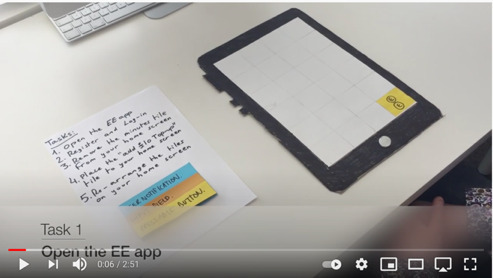 Tasks:
1. Open the EE app
2. Register and Log-in
3. Remove the minutes tile
from your home screen
4. Place the "add $10 Top-up"
tile to your home screen
5. Re-arrange the tiles
on your home screen
NOTIFICATION
FIELD
BUTTON.
Task 1
Open the EE app
0:06 / 2:51